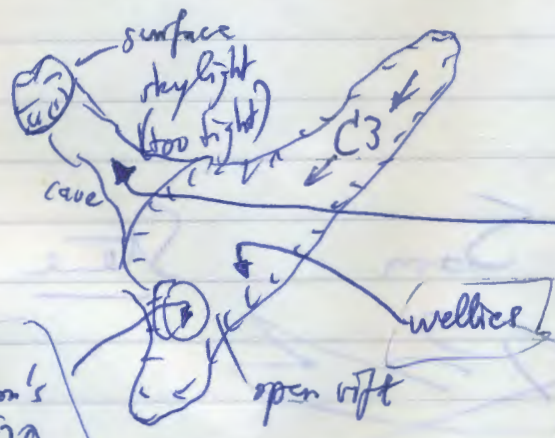 surface
skylight
(too tight)
C3
cave
wellies
open rift
on's